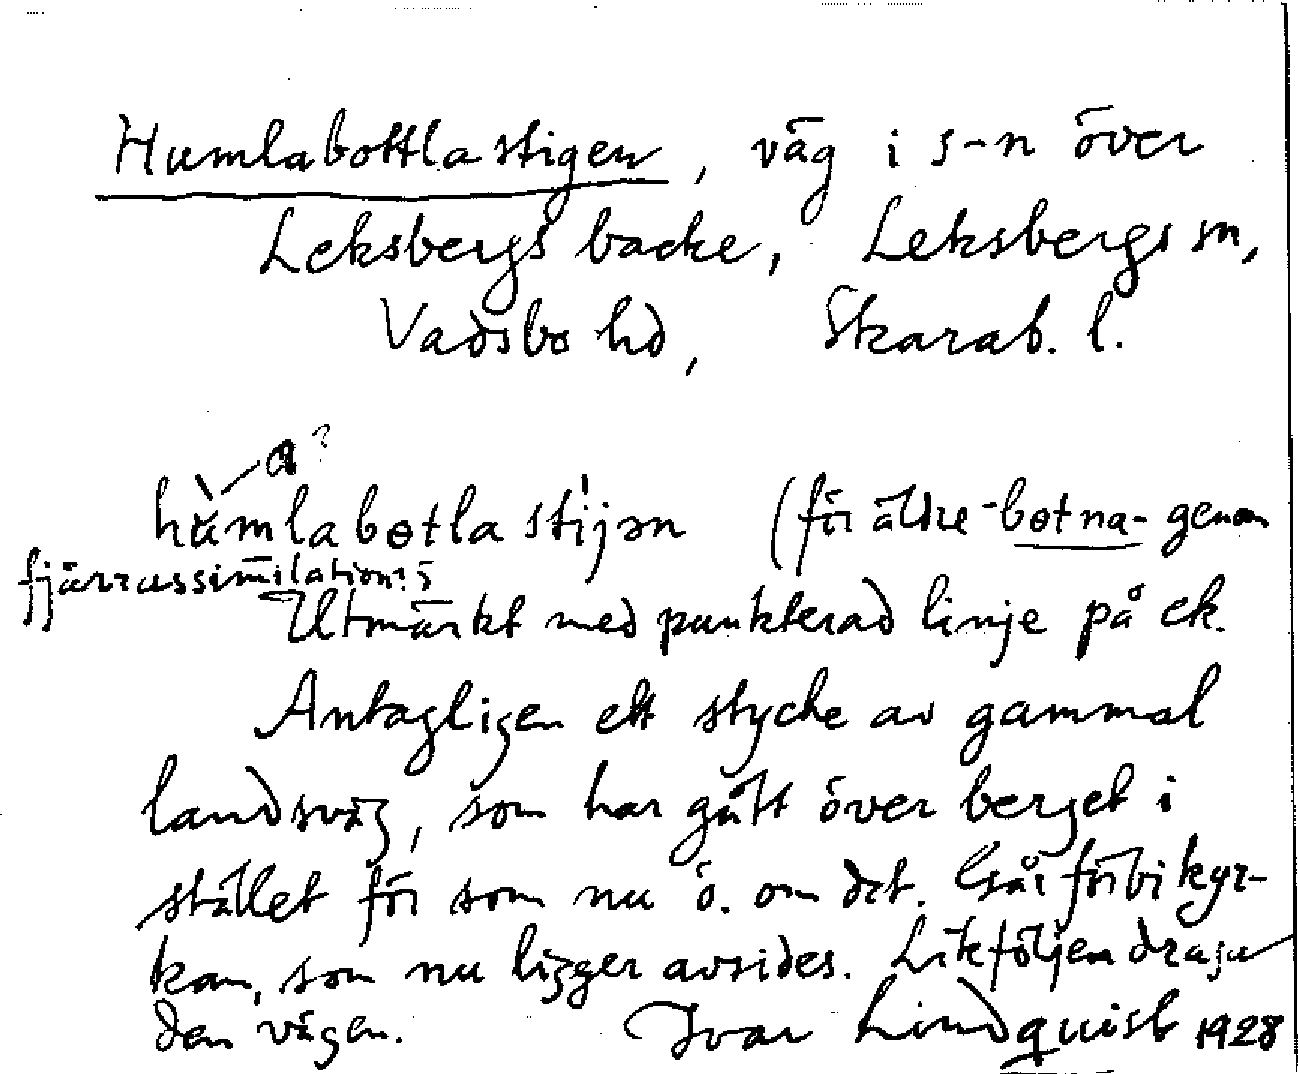 Humlabottlastigen, väg i s-n över
Leksbergs backe, Leksbergs sn,
Vadsbo hd, Skarab. l.
a?
hùmlabɵtla stijən (för äldre -bɵtna- genom
fjärrassimilation?;
Utmärkt med punkterad linje på ek.
Antagligen ett stycke av gammal
landsväg, som har gått över berget i
stället för som nu ö. om det. Går förbi kyr-
kan, som nu ligger avsides. Likföljen draga
den vägen. Ivar Lindquist 1928